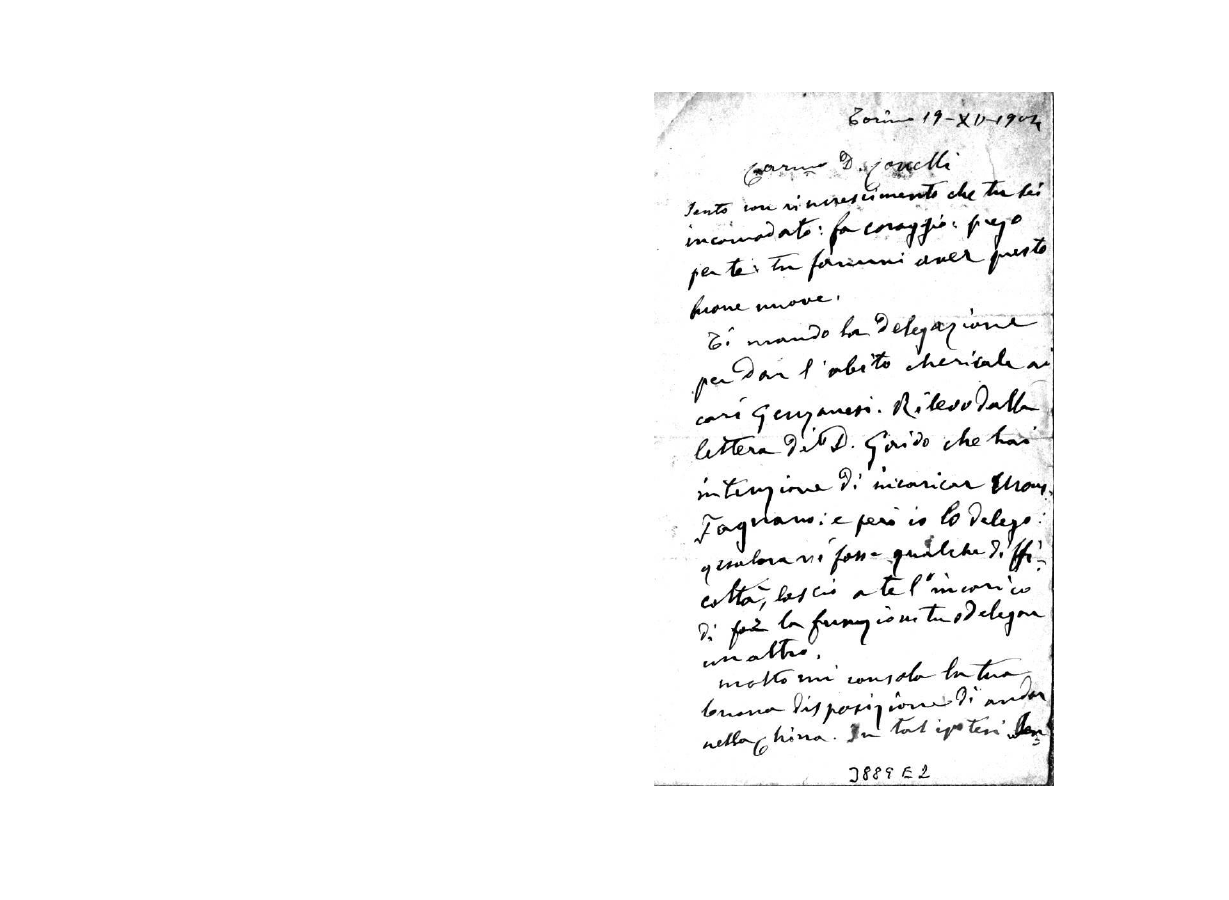 Torino 19-XII-1904
Carmo D. Conelli
Sento con rincrescimento che tu sei
incomodato: fa coraggio: prego
per te: tu fammi aver presto
buone nuove.
Ti mando la delegazione
per dar l'abito chericale ai
cari Genzanesi. Rilevo dalla
lettera di D. che hai
intenzione di incaricar Mons.
Fagnano: e però io lo delego:
qualora vi fosse qualche diffi-
coltà, lascio a te l'incarico
di far la funzione tu o delegar
un altro.
Molto mi consola la tua
buona disposizione di andar
nella China. In tal ipotesi
3889 E 2